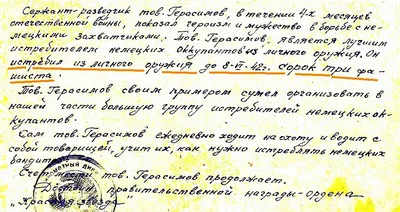 Сержант-разведчик тов. Герасимов, в течении 4-х месяцев
отечественной войны, показал героизм и мужество в борьбе с не-
мецкими захватчиками. Тов. Герасимов, является лучшим
истребителем немецких оккупантов из личного оружия. Он
истребил из личного оружия до 8-VI-42г. сорок три фа-
шиста.
Тов. Герасимов своим примером сумел организовать в
нашей части большую группу истребителей немецких ок-
купантов.
Сам тов. Герасимов ежедневно ходит на охоту и водит с
собой товарищей, учит их, как нужно истреблять немецких
бандитов.
Счет мести тов. Герасимов продолжает.
Достоин правительственной награды-ордена
"Красная звезда"